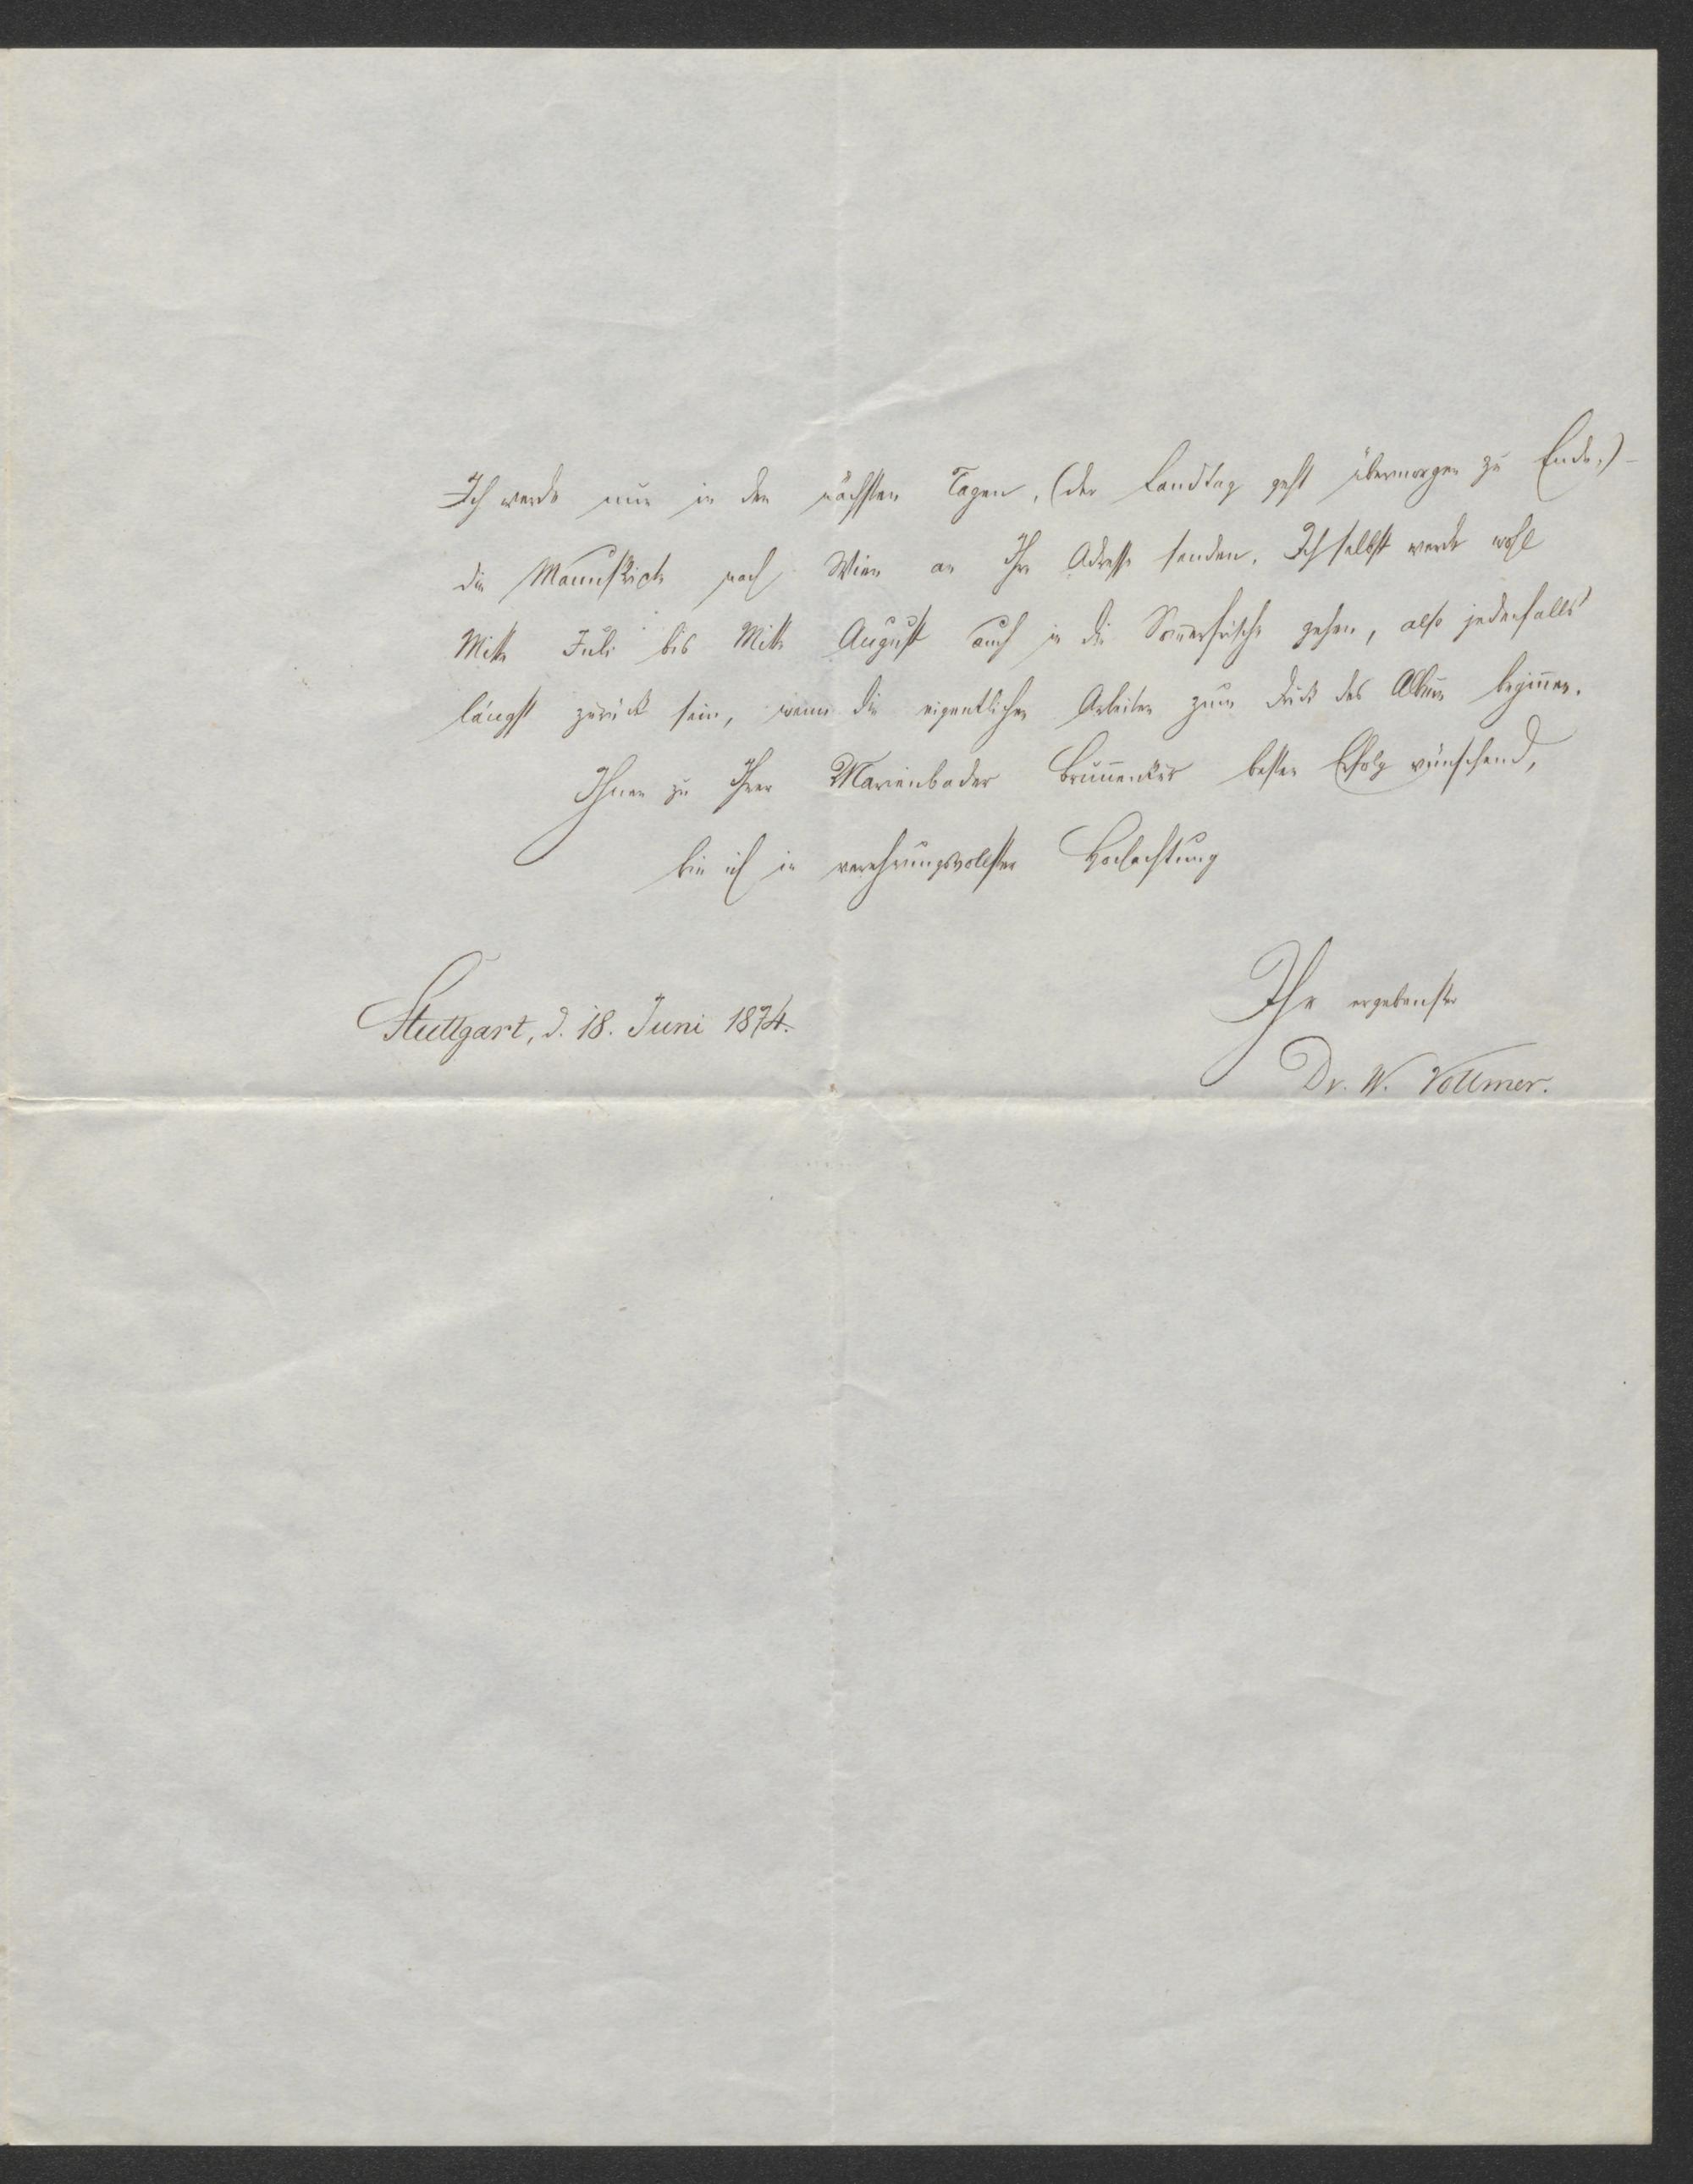 Ich werde nun in den nächsten Tagen, (der Landtag geht übermorgen zu Ende,) -
die Manuskripte nach Wien an Ihre Adresse senden. Ich selbst werde wohl
Mitte Juli bis Mitte August auch in die Som̅erfrische gehen, also jedenfalls
längst zurück sein, wenn die eigentlichen Arbeiten zum Druck des Album begin̅en.
Ihnen zu Ihrer Marienbader Brun̅enkur besten Erfolg wünschend,
bin ich in verehrungsvollster Hochachtung
Ihr ergebenster
Stuttgart, d. 18. Juni 1874.
Dr. W. Vollmer.